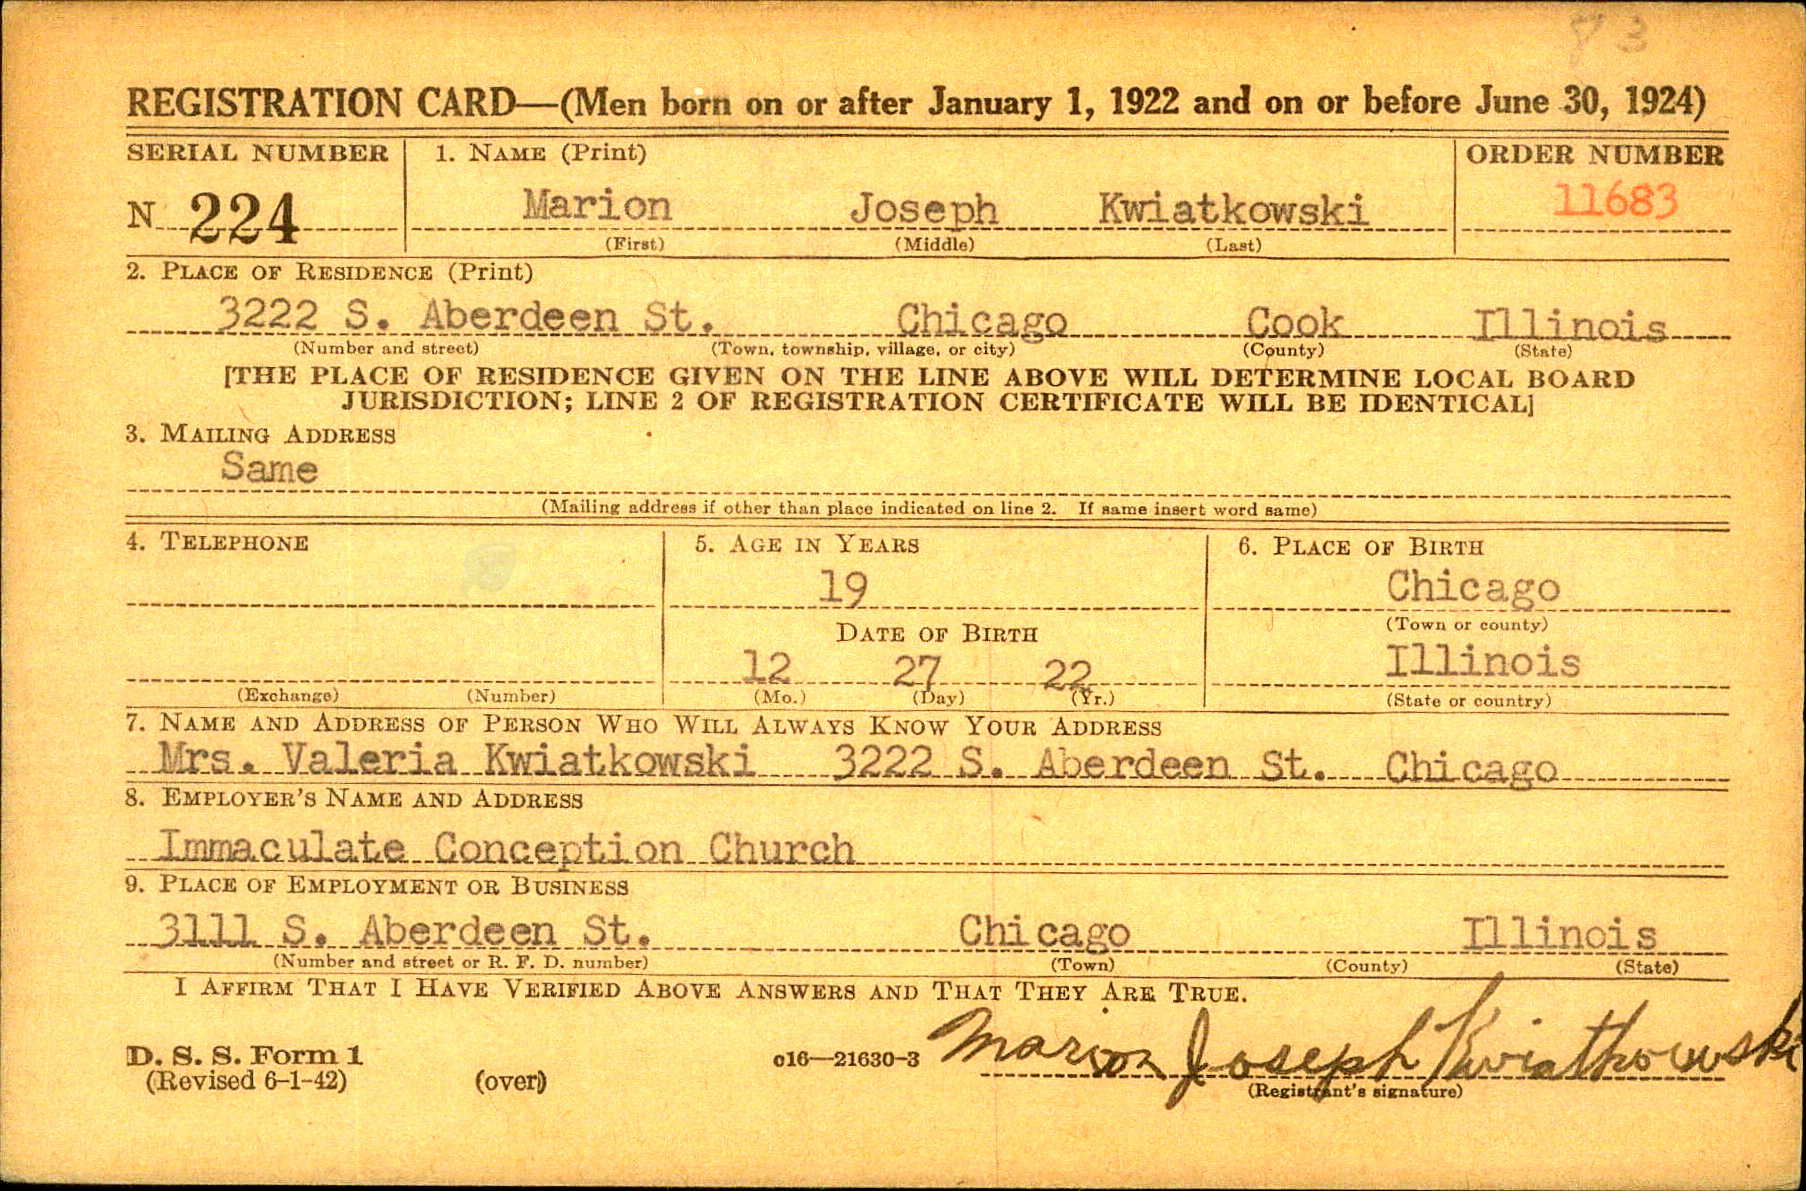 83
REGISTRATION CARD—(Men born on or after January 1, 1922 and on or before June 30, 1924)
SERIAL NUMBER 1. NAME (Print) ORDER NUMBER
N 224 Marion Joseph Kwiatkowski 11683
(First) (Middle) (Last)
2. PLACE OF RESIDENCE (Print)
3222 S. Aberdeen St. Chicago Cook Illinois
(Number and street) (Town, township, village, or city) (County) (State)
[THE PLACE OF RESIDENCE GIVEN ON THE LINE ABOVE WILL DETERMINE LOCAL BOARD
JURISDICTION; LINE 2 OF REGISTRATION CERTIFICATE WILL BE IDENTICAL]
3. MAILING ADDRESS
Same
(Mailing address if other than place indicated on line 2. If same insert word same)
4. TELEPHONE 5. AGE IN YEARS 6. PLACE OF BIRTH
19 Chicago
DATE OF BIRTH (Town or county)
12 27 22 Illinois
(Exchange) (Number) (Mo.) (Day) (Yr.) (State or country)
7. NAME AND ADDRESS OF PERSON WHO WILL ALWAYS KNOW YOUR ADDRESS
Mrs. Valeria Kwiatkowski 3222 S. Aberdeen St. Chicago
8. EMPLOYER'S NAME AND ADDRESS
Immaculate Conception Church
9. PLACE OF EMPLOYMENT OR BUSINESS
3111 S. Aberdeen St. Chicago Illinois
(Number and street or R. F. D. number) (Town) (County) (State)
I AFFIRM THAT I HAVE VERIFIED ABOVE ANSWERS AND THAT THEY ARE TRUE.
D. S. S. Form 1 o16—21630-3 Marion Joseph Kwiatkowski
(Revised 6-1-42) (over) (Registrant's signature)